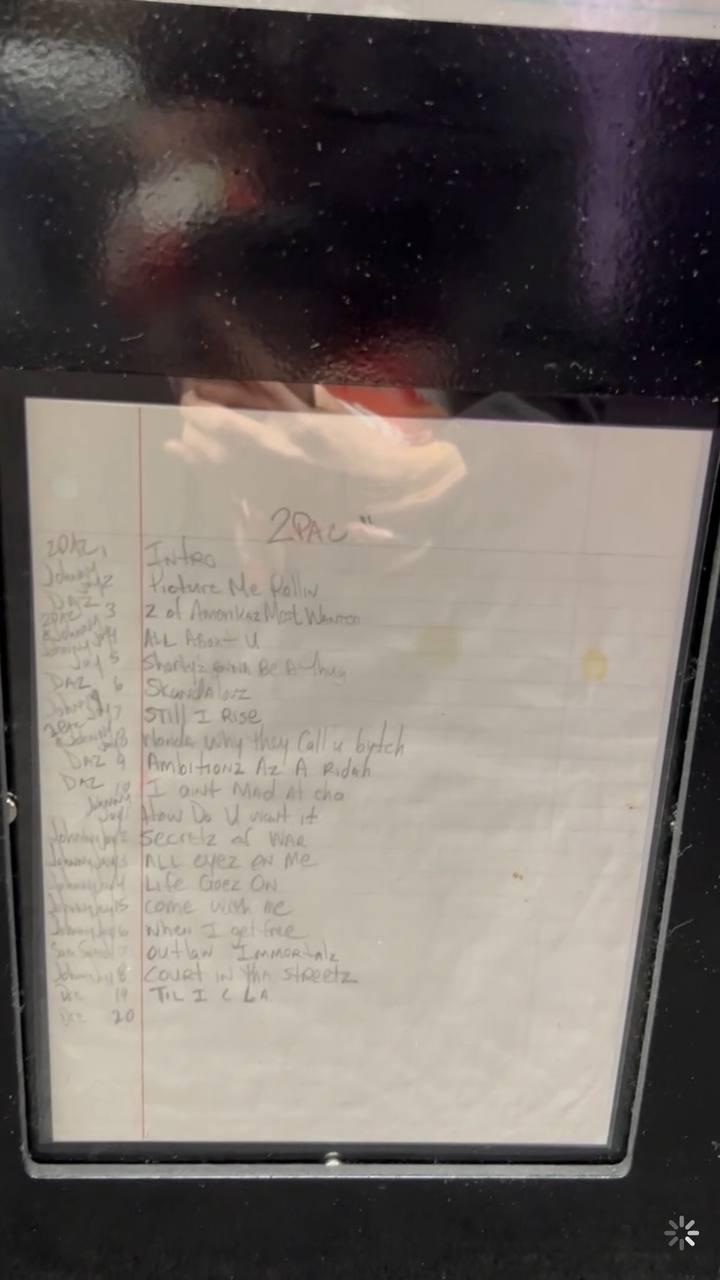 2PAC"
2PAC 1 Intro
Johnny Jay 2 Picture Me Rollin
DAZ 3 2 of Amerikaz Most Wanted
2PAC & Johnny Jay 4 ALL About U
Johnny Jay 5 Shorty'z gonna Be A thug
DAZ 6 Skandalouz
Johnny Jay 7 STILL I RISE
2Pac & Johnny Jay 8 Wonda why they Call u bytch
DAZ 9 Ambitionz Az A Ridah
DAZ 10 I aint Mad At cha
Johnny Jay 1 How Do U want it
Johnny Jay 2 Secretz of WAR
Johnny Jay 3 ALL eyez ON Me
Johnny Jay 4 Life Goez ON
Johnny Jay 15 come with me
Johnny Jay 6 when I get free
outlaw Immortalz
Johnny Jay 8 Court in tha streetz
Dre 19 TIL I C L.A.
Dre 20